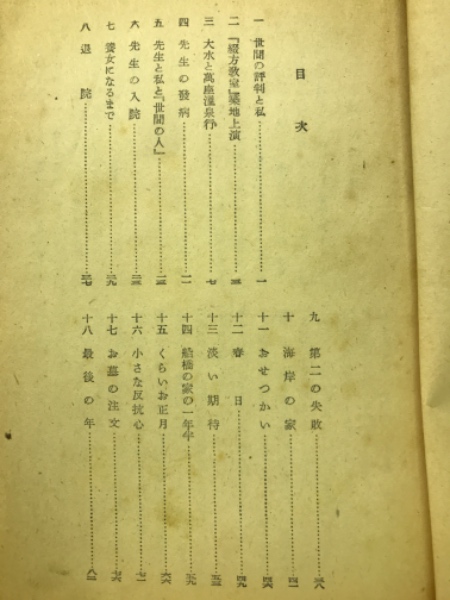 目次
一 世間の評判と私……一
二 『綴方敎室』築地上演……三
三 大水と萬座溫泉行……七
四 先生の發病……一一
五 先生と私と『世間の人』……
六 先生の入院……
七 養女になるまで……
八 退院……
九 第二の失敗……三八
十 海岸の家……四一
十一 おせつかい……四六
十二 春日……四九
十三 淡い期待……五三
十四 船橋の家の一年半……五九
十五 くらいお正月……六六
十六 小さな反抗心……七一
十七 お墓の注文……七六
十八 最後の年……八三